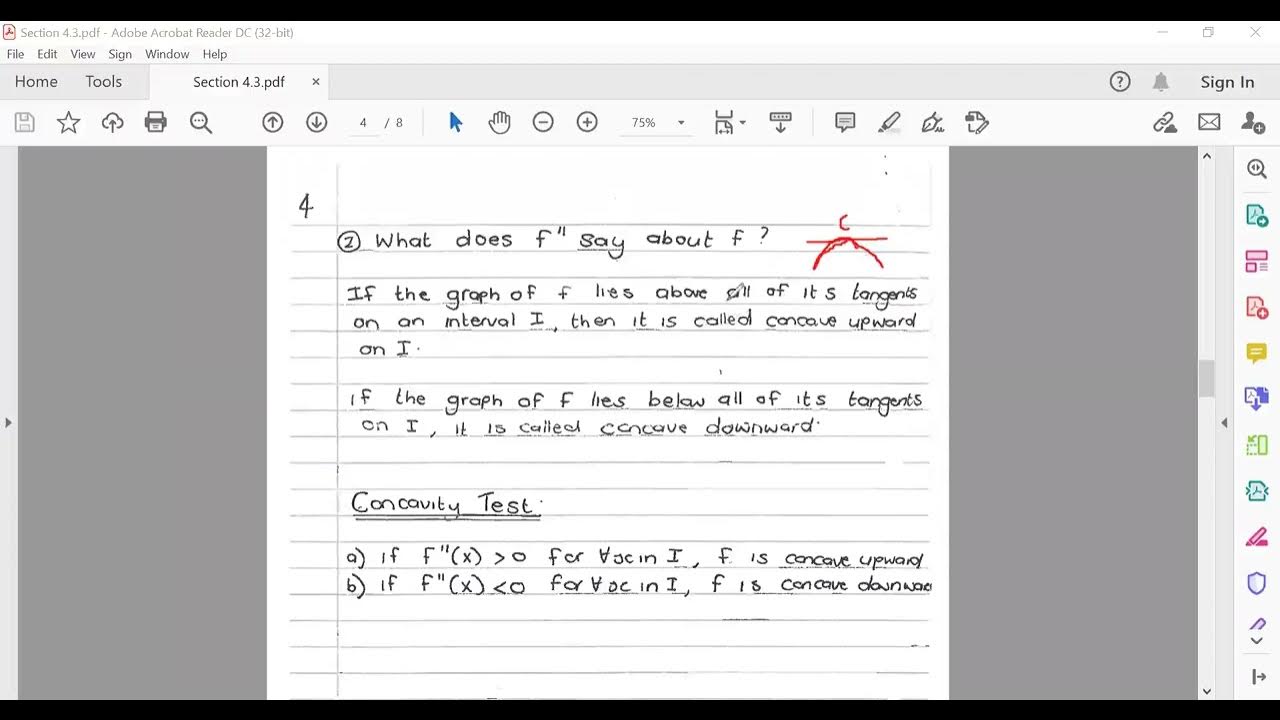 Section 4.3.pdf - Adobe Acrobat Reader DC (32-bit)
File Edit View Sign Window Help
Home Tools Section 4.3.pdf × Sign In
4 / 8 75%
4
C
② What does f" say about f ?
If the graph of f lies above all of its tangents
on an interval I, then it is called concave upward
on I.
If the graph of f lies below all of its tangents
on I, it is called concave downward.
Concavity Test.
a) if f"(x) > 0 for ∀x in I, f is concave upward
b) if f"(x) < 0 for ∀x in I, f is concave downward